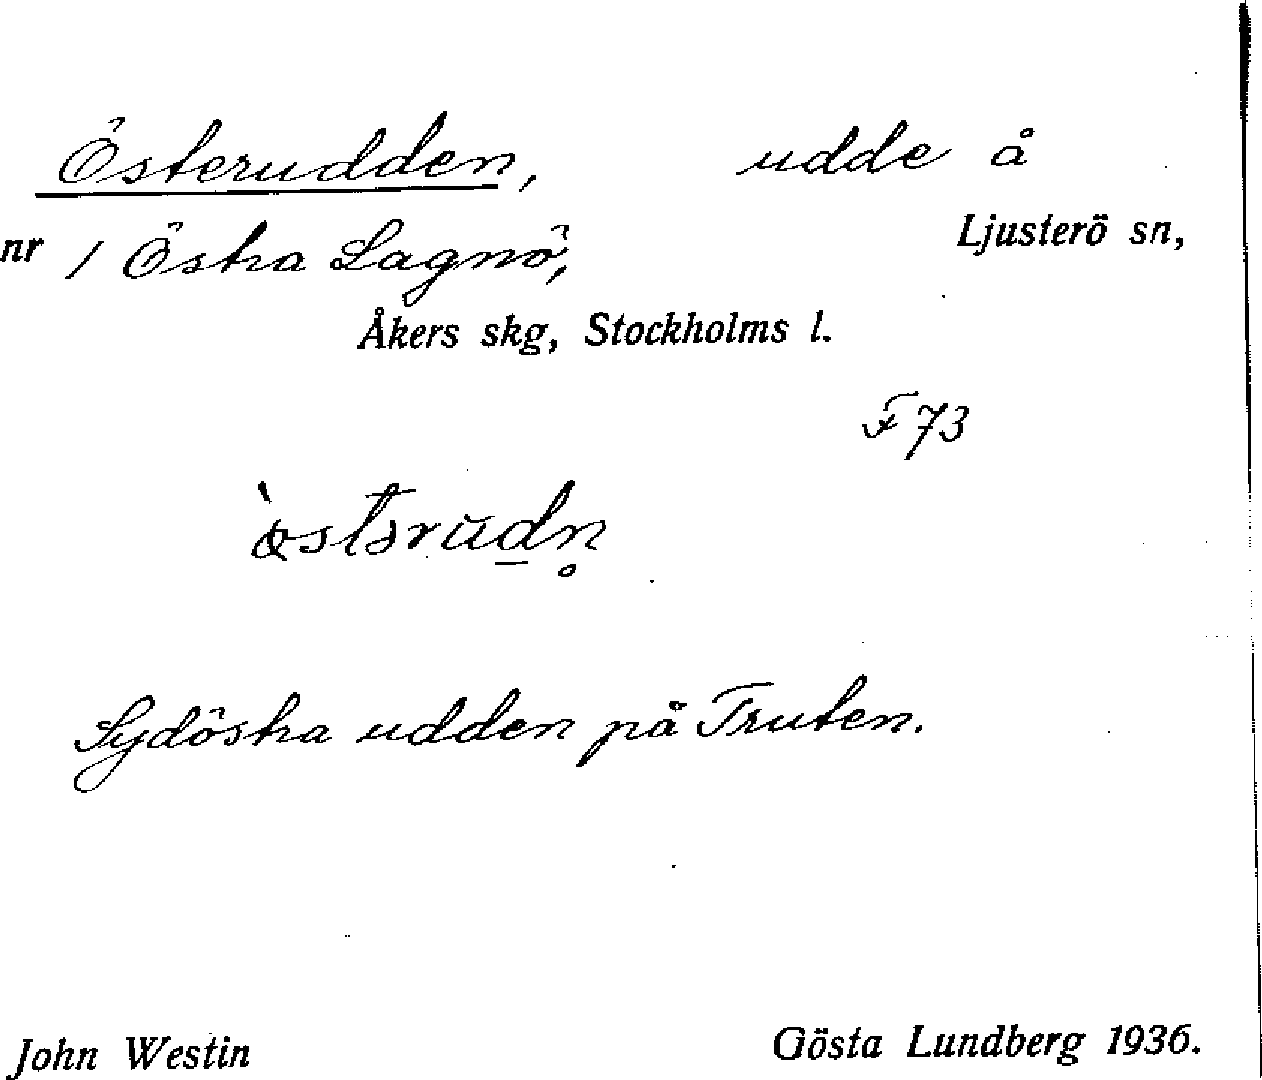 Österudden, udde å
nr 1 Östra Lagnö, Ljusterö sn,
Åkers skg, Stockholms l.
F 73
Sydöstra udden på Truten.
John Westin Gösta Lundberg 1936.